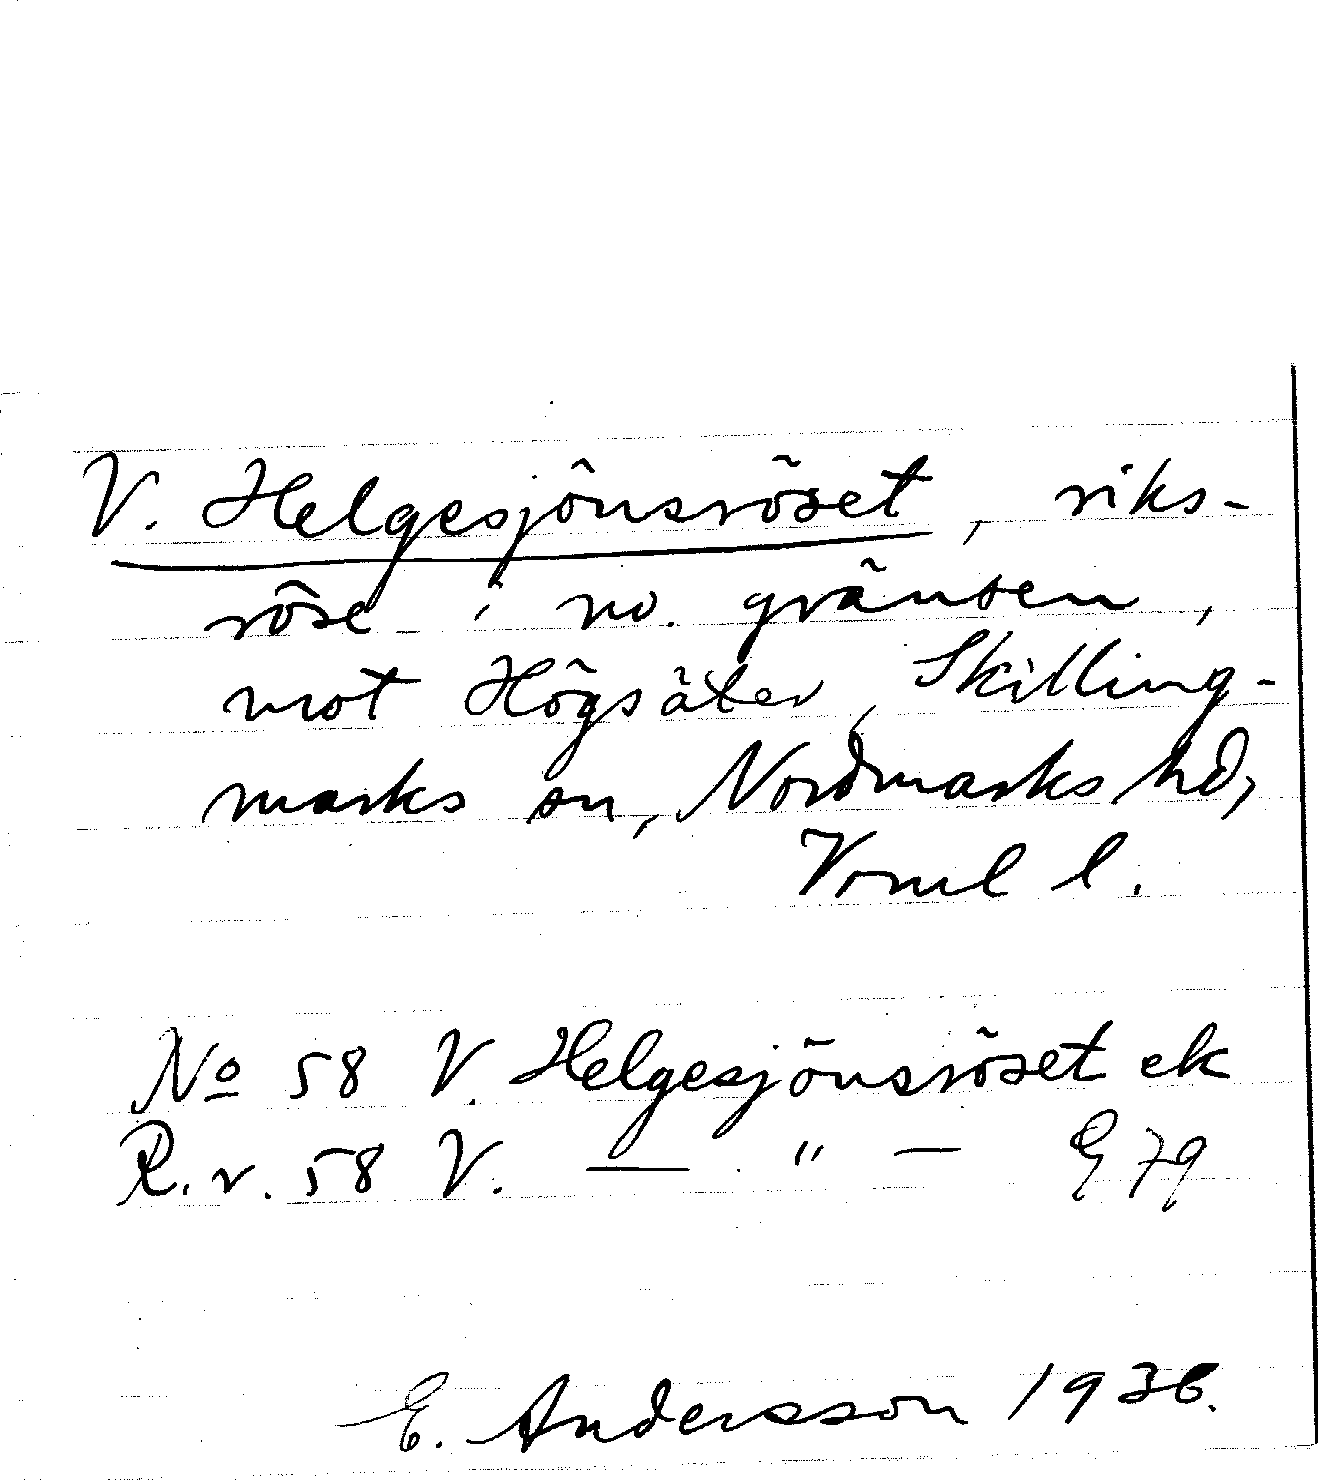 V. Helgesjönsröset, riks-
röse i no. gränsen,
mot Högsäter, Skilling-
marks sn, Nordmarks hd,
Vrml l.
No 58 V. Helgesjönsröset ek
R.r. 58 V. — " — E 79
E. Andersson 1936.